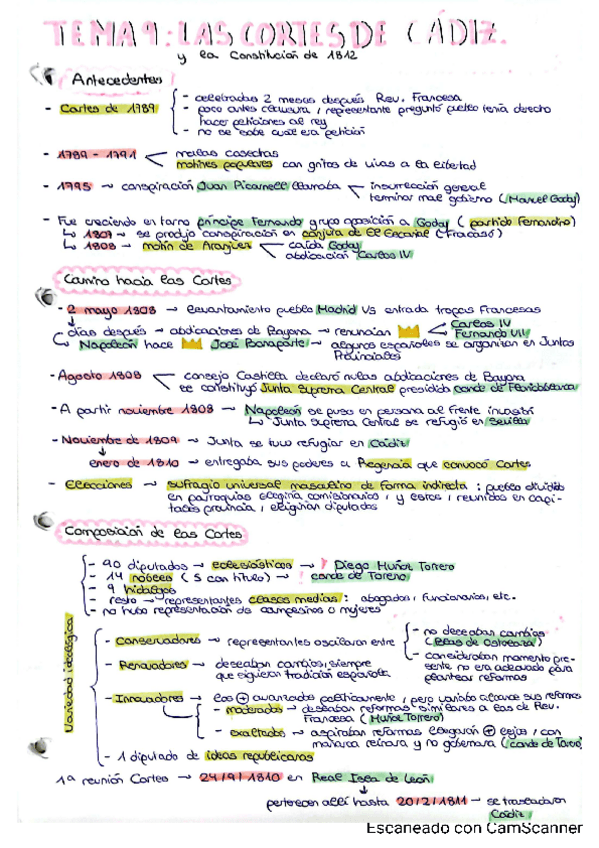 TEMA 9: LAS CORTES DE CÁDIZ.
y la Constitución de 1812
Antecedentes
- Cortes de 1789
- celebradas 2 meses después Rev. Francesa
- poco antes clausura, representante preguntó pueblo tenía derecho
hacer peticiones al rey
- no se sabe cual era petición
- 1789 - 1791
malas cosechas
motines populares con gritos de vivas a la libertad
- 1795 → conspiración Juan Picarnell llamaba
insurrección general
terminar mal gobierno (Manuel Godoy)
- Fue creciendo en torno príncipe Fernando grupo oposición a Godoy (partido Fernandino)
↳ 1807 → se produjo conspiración en conjura de El Escorial (fracasó)
↳ 1808 → motín de Aranjuez
caída Godoy
abdicación Carlos IV
Camino hacia las Cortes
- 2 mayo 1808 → levantamiento pueblo Madrid vs entrada tropas Francesas
días después → abdicaciones de Bayona → renuncian
Carlos IV
Fernando VII
↳ Napoleón hace José Bonaparte → algunos españoles se organizan en Juntas
Provinciales
- Agosto 1808
consejo Castilla declaró nulas abdicaciones de Bayona
se constituyó Junta Suprema Central presidida conde de Floridablanca
- A partir noviembre 1808 → Napoleón se puso en persona al frente invasión
↳ Junta Suprema Central se refugió en Sevilla
- Noviembre de 1809 → Junta se tuvo refugiar en Cádiz
enero de 1810 → entregaba sus poderes a Regencia que convocó Cortes
- Elecciones → sufragio universal masculino de forma indirecta: pueblo dividido
en parroquias elegiría comisionarios, y estos, reunidos en capi-
tales provincia, eligirían diputados
Composición de las Cortes
- 90 diputados → eclesiásticos → Diego Muñoz Torrero
- 14 nobles (5 con título) → conde de Toreno
- 9 hidalgos
- resto → representantes clases medias: abogados, funcionarios, etc.
- no hubo representación de campesinos o mujeres
Variedad ideológica
- Conservadores → representantes oscilaron entre
- no deseaban cambios
(Blas de Ostolaza)
- consideraban momento pre-
sente no era adecuado para
plantear reformas
- Renovadores → deseaban cambios, siempre
que siguieran tradición española
- Innovadores → los + avanzados políticamente, pero variaba alcance sus reformas
- moderados → deseaban reformas similares a las de Rev.
Francesa (Muñoz Torrero)
- exaltados → aspiraban reformas llegaran + lejos, con
monarca reinara y no gobernara (conde de Toreno)
- 1 diputado de ideas republicanas
1ª reunión Cortes → 24/9/1810 en Real Isla de León
pertenecen allí hasta 20/2/1811 → se trasladaron
Cádiz
Escaneado con CamScanner